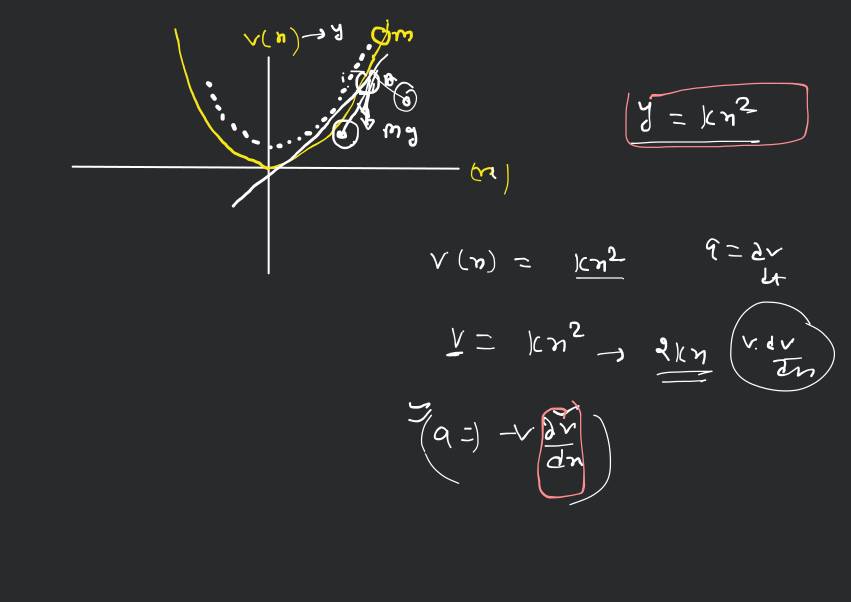 v(x) → y
m
mg
(x)
y = kx²
v(x) = kx²
a = dv/dt
v = kx² → 2kx
v.dv/dx
(a => -v dv/dx)